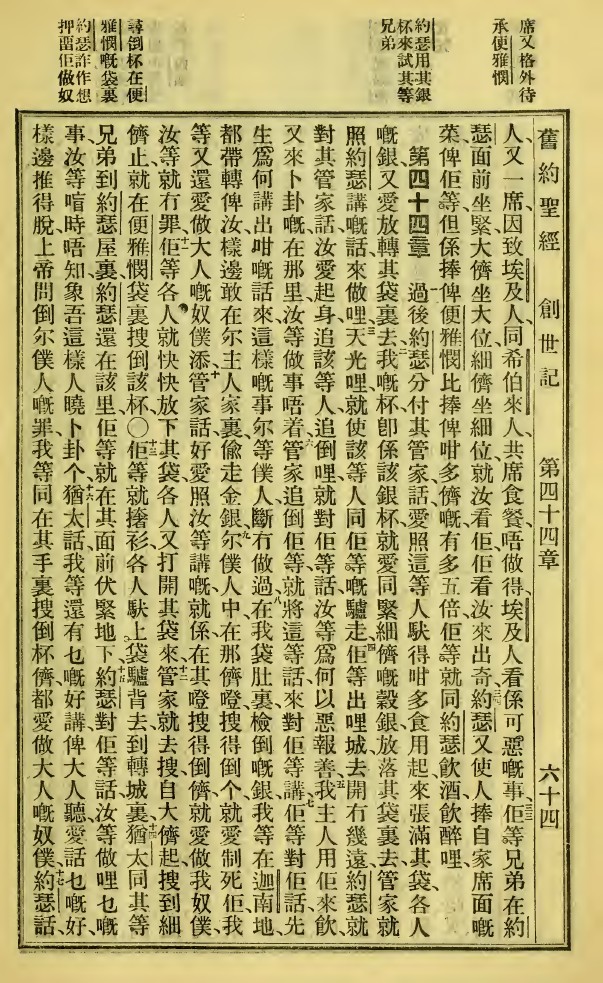 席又格外待
承便雅憫
約瑟用其銀
杯來試其等
兄弟
尋倒杯在便
雅憫嘅袋裏
約瑟詐作想
押畱佢做奴
舊約聖經 創世記 第四十四章 六十四
人、又一席、因致埃及人、同希伯來人、共席食餐、唔做得、埃及人看係可惡嘅事、三三佢等兄弟在約
瑟面前坐緊、大儕坐大位、細儕坐細位、就汝看佢、佢看汝、來出奇、三四約瑟又使人捧自家席面嘅
菜俾佢等、但係捧俾便雅憫、比捧俾咁多儕嘅有多五倍、佢等就同約瑟飲酒飲醉哩、
第四十四章 一過後約瑟分付其管家話、愛照這等人䭾得咁多食用起來、張滿其袋、各人
嘅銀、又愛放轉其袋裏去、二我嘅杯、卽係該銀杯、就愛同緊細儕嘅穀銀、放落其袋裏去、管家就
照約瑟講嘅話來做哩、三天光哩、就使該等人、同佢等嘅驢走、四佢等出哩城去、開冇幾遠、約瑟就
對其管家話、汝愛起身追該等人、追倒哩、就對佢等話、汝等爲何以惡報善、五我主人用佢來飲、
又來卜卦嘅、在那里、汝等做事唔着、六管家追倒佢等、就將這等話來對佢等講、七佢等對佢話、先
生爲何講出咁嘅話來、這樣嘅事、尔等僕人斷冇做過、八在我袋肚裏檢倒嘅銀、我等在迦南地、
都帶轉俾汝、樣邊敢在尔主人家裏、偷走金銀、九尔僕人中、在那儕嗱搜得倒个、就愛制死佢、我
等又還愛做大人嘅奴僕添、十管家話、好、愛照汝等講嘅、就係在其嗱搜得倒儕、就愛做我奴僕、
汝等就冇罪、十一佢等各人就快快放下其袋、各人又打開其袋來、十二管家就去搜、自大儕起、搜到細
儕止、就在便雅憫袋裏搜倒該杯、〇十三佢等就㨋衫、各人䭾上袋驢背去、到轉城裏、十四猶太同其等
兄弟到約瑟屋裏、約瑟還在該里、佢等就在其面前伏緊地下、十五約瑟對佢等話、汝等做哩乜嘅
事、汝等喑時唔知、象吾這樣人曉卜卦个、十六猶太話、我等還有乜嘅好講俾大人聽、愛話乜嘅好、
樣邊推得脫、上帝問倒尔僕人嘅罪、我等同在其手裏搜倒杯儕、都愛做大人嘅奴僕、十七約瑟話、